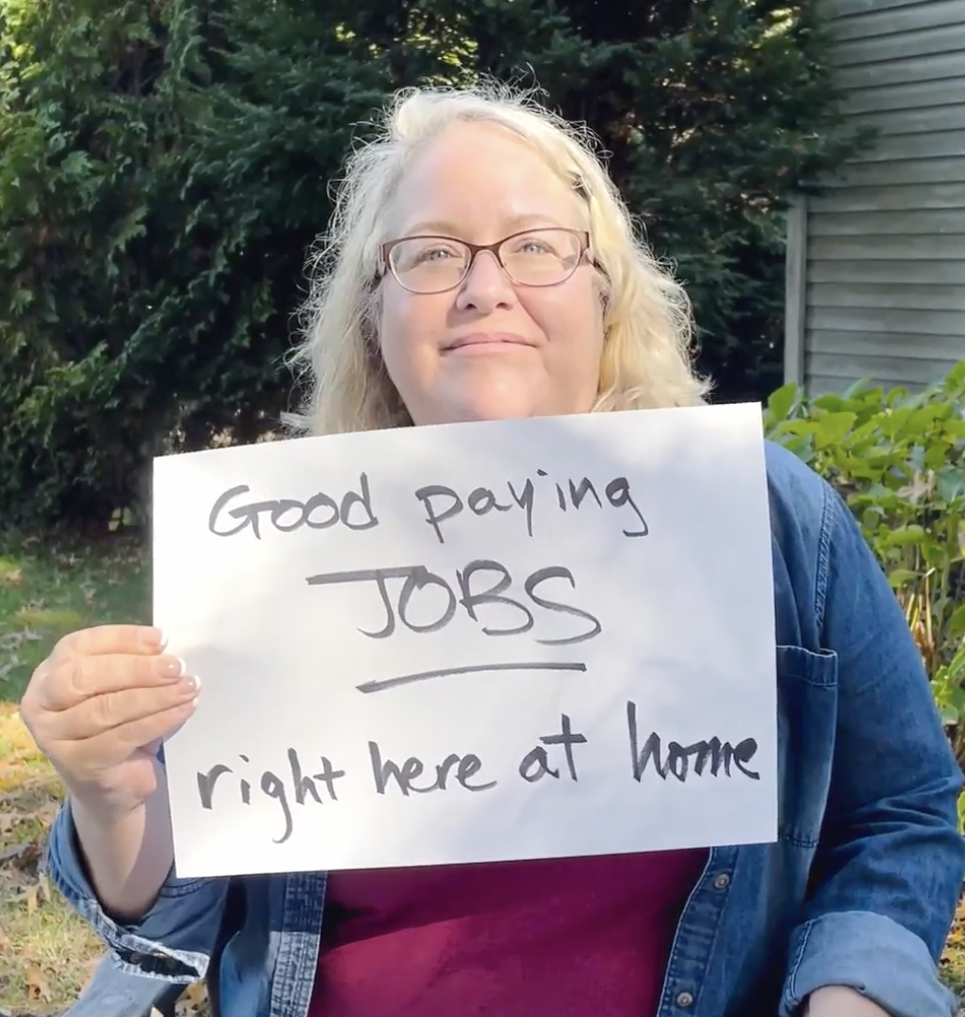 Good paying
JOBS
right here at home